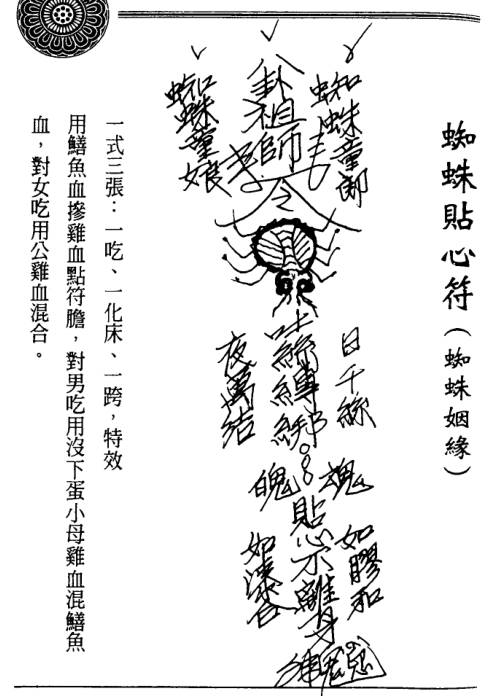 蜘蛛貼心符（蜘蛛姻緣）
蜘蛛童郎
八卦祖師令
蜘蛛童娘
日千絲
吐絲縛綁
夜萬結
魂
魄
貼心不離身
如膠和
如漆合
一式三張：一吃、一化床、一跨，特效
用鱔魚血摻雞血點符膽，對男吃用沒下蛋小母雞血混鱔魚
血，對女吃用公雞血混合。